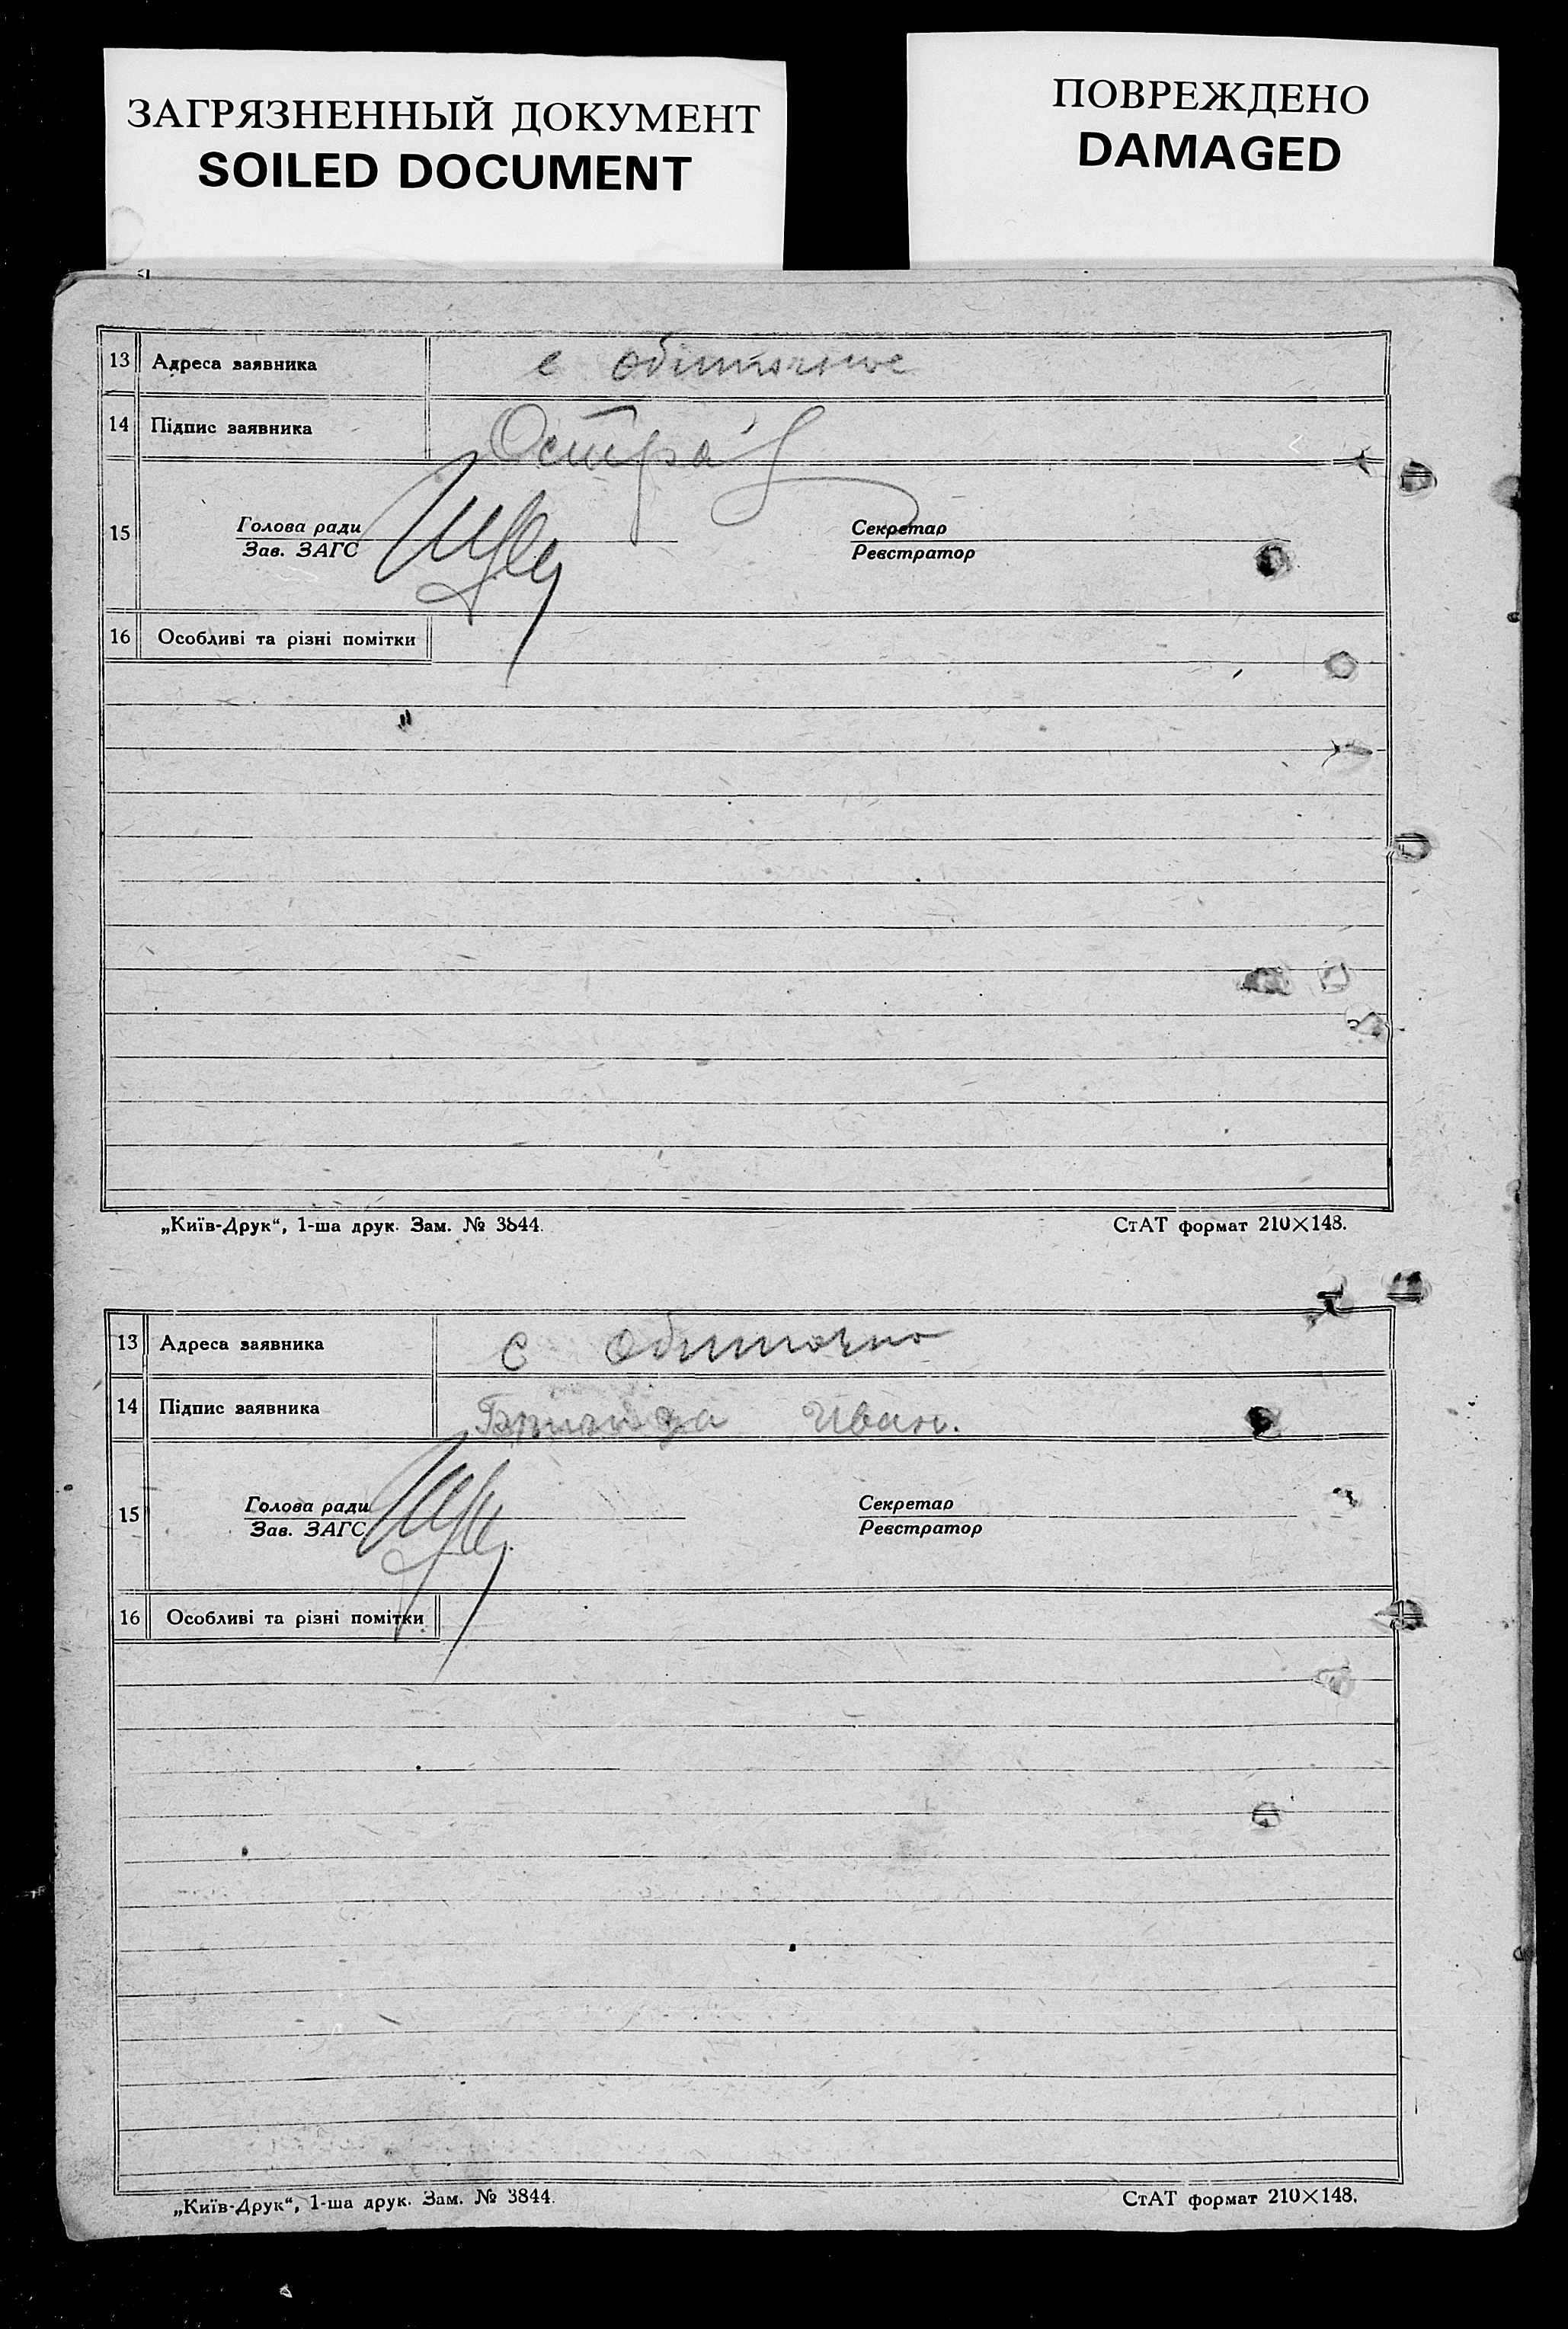 ЗАГРЯЗНЕННЫЙ ДОКУМЕНТ
SOILED DOCUMENT
ПОВРЕЖДЕНО
DAMAGED
13 Адреса заявника с
14 Підпис заявника Остра
15 Голова ради Секретар
Зав. ЗАГС Реєстратор
16 Особливі та різні помітки
„Київ-Друк“, 1-ша друк. Зам. № 3844. СтАТ формат 210×148.
13 Адреса заявника с
14 Підпис заявника Иван.
15 Голова ради Секретар
Зав. ЗАГС Реєстратор
16 Особливі та різні помітки
„Київ-Друк“, 1-ша друк. Зам. № 3844. СтАТ формат 210×148.